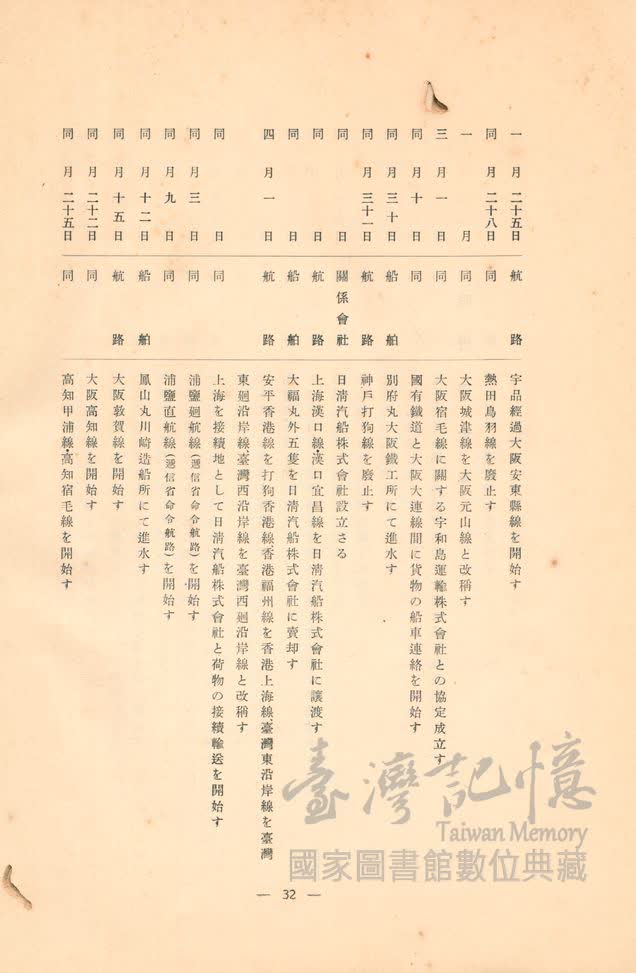 一月二十五日 航路 宇品經過大阪安東縣線を開始す
同月二十八日 同 熱田鳥羽線を廢止す
一月 同 大阪城津線を大阪元山線と改稱す
三月一日 同 大阪宿毛線に關する宇和島運輸株式會社との協定成立す
同月十日 同 國有鐵道と大阪大連線間に貨物の船車連絡を開始す
同月三十日 船舶 別府丸大阪鐵工所にて進水す
同月三十一日 航路 神戶打狗線を廢止す
同日 關係會社 日淸汽船株式會社設立さる
同日 航路 上海漢口線、漢口宜昌線を日淸汽船株式會社に讓渡す
同日 船舶 大福丸外五隻を日淸汽船株式會社に賣却す
四月一日 航路 安平香港線を打狗香港線香港福州線を香港上海線臺灣東沿岸線を臺灣
東廻沿岸線臺灣西沿岸線を臺灣西廻沿岸線と改稱す
同日 同 上海を接續地として日淸汽船株式會社と荷物の接續輸送を開始す
同月三日 同 浦鹽廻航線(遞信省命令航路)を開始す
同月九日 同 浦鹽直航線(遞信省命令航路)を開始す
同月十二日 船舶 鳳山丸川崎造船所にて進水す
同月十五日 航路 大阪敦賀線を開始す
同月二十二日 同 大阪高知線を開始す
同月二十五日 同 高知甲浦線、高知宿毛線を開始す
— 32 —
臺灣記憶
Taiwan Memory
國家圖書館數位典藏